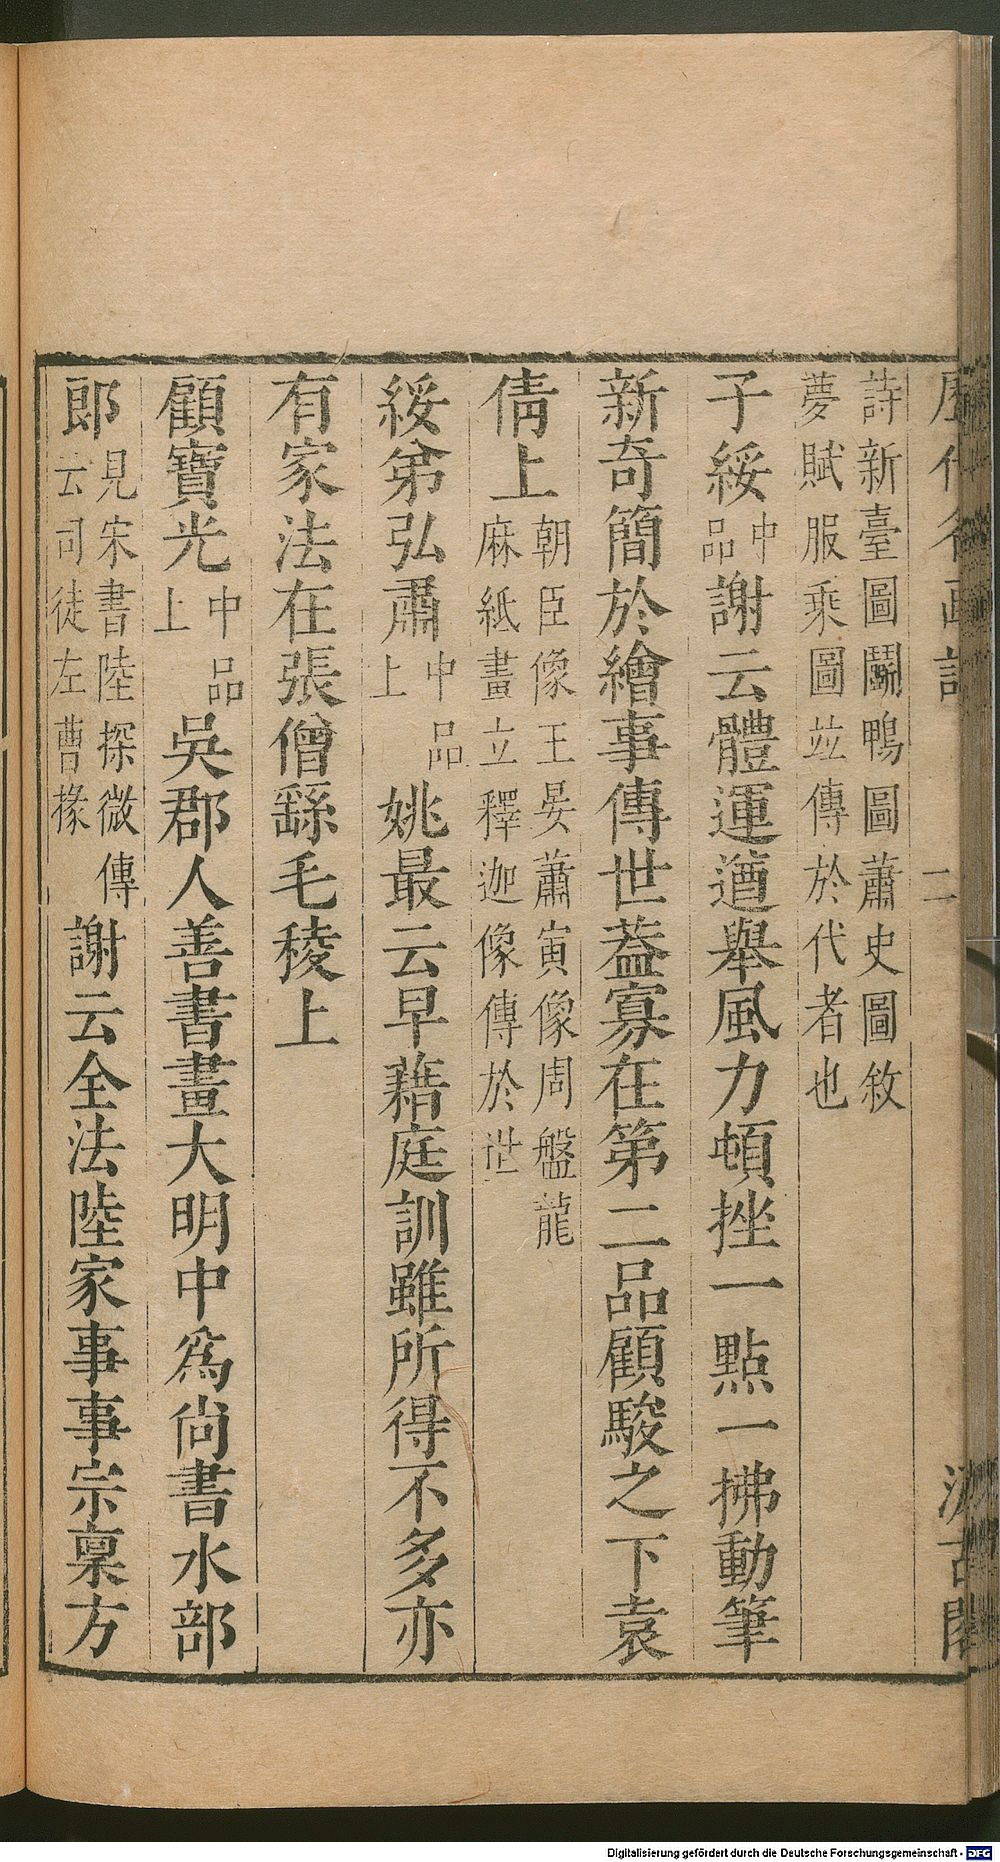 詩新臺圖鬭鴨圖蕭史圖敘
夢賦服乘圖竝傳於代者也
子綏中品謝云體運遒舉風力頓挫一點一拂動筆
新奇簡於繪事傳世葢寡在第二品顧駿之下袁
倩上朝臣像王晏蕭寅像周盤龍
麻紙畫立釋迦像傳於世
綏弟弘肅中品上姚最云早藉庭訓雖所得不多亦
有家法在張僧繇毛稜上
顧寶光中品上吳郡人善書畫大明中爲尚書水部
郎見宋書陸探微傳云司徒左曹掾謝云全法陸家事事宗稟方
歷代名画記
二
汲古閣
Digitalisierung gefördert durch die Deutsche Forschungsgemeinschaft - DFG